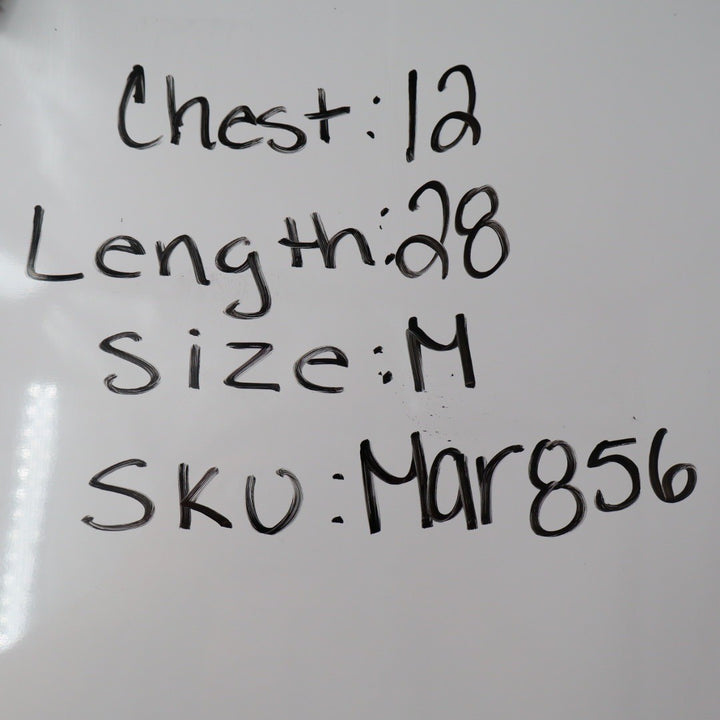 Chest:12
Length:28
Size:M
SKU:Mar856